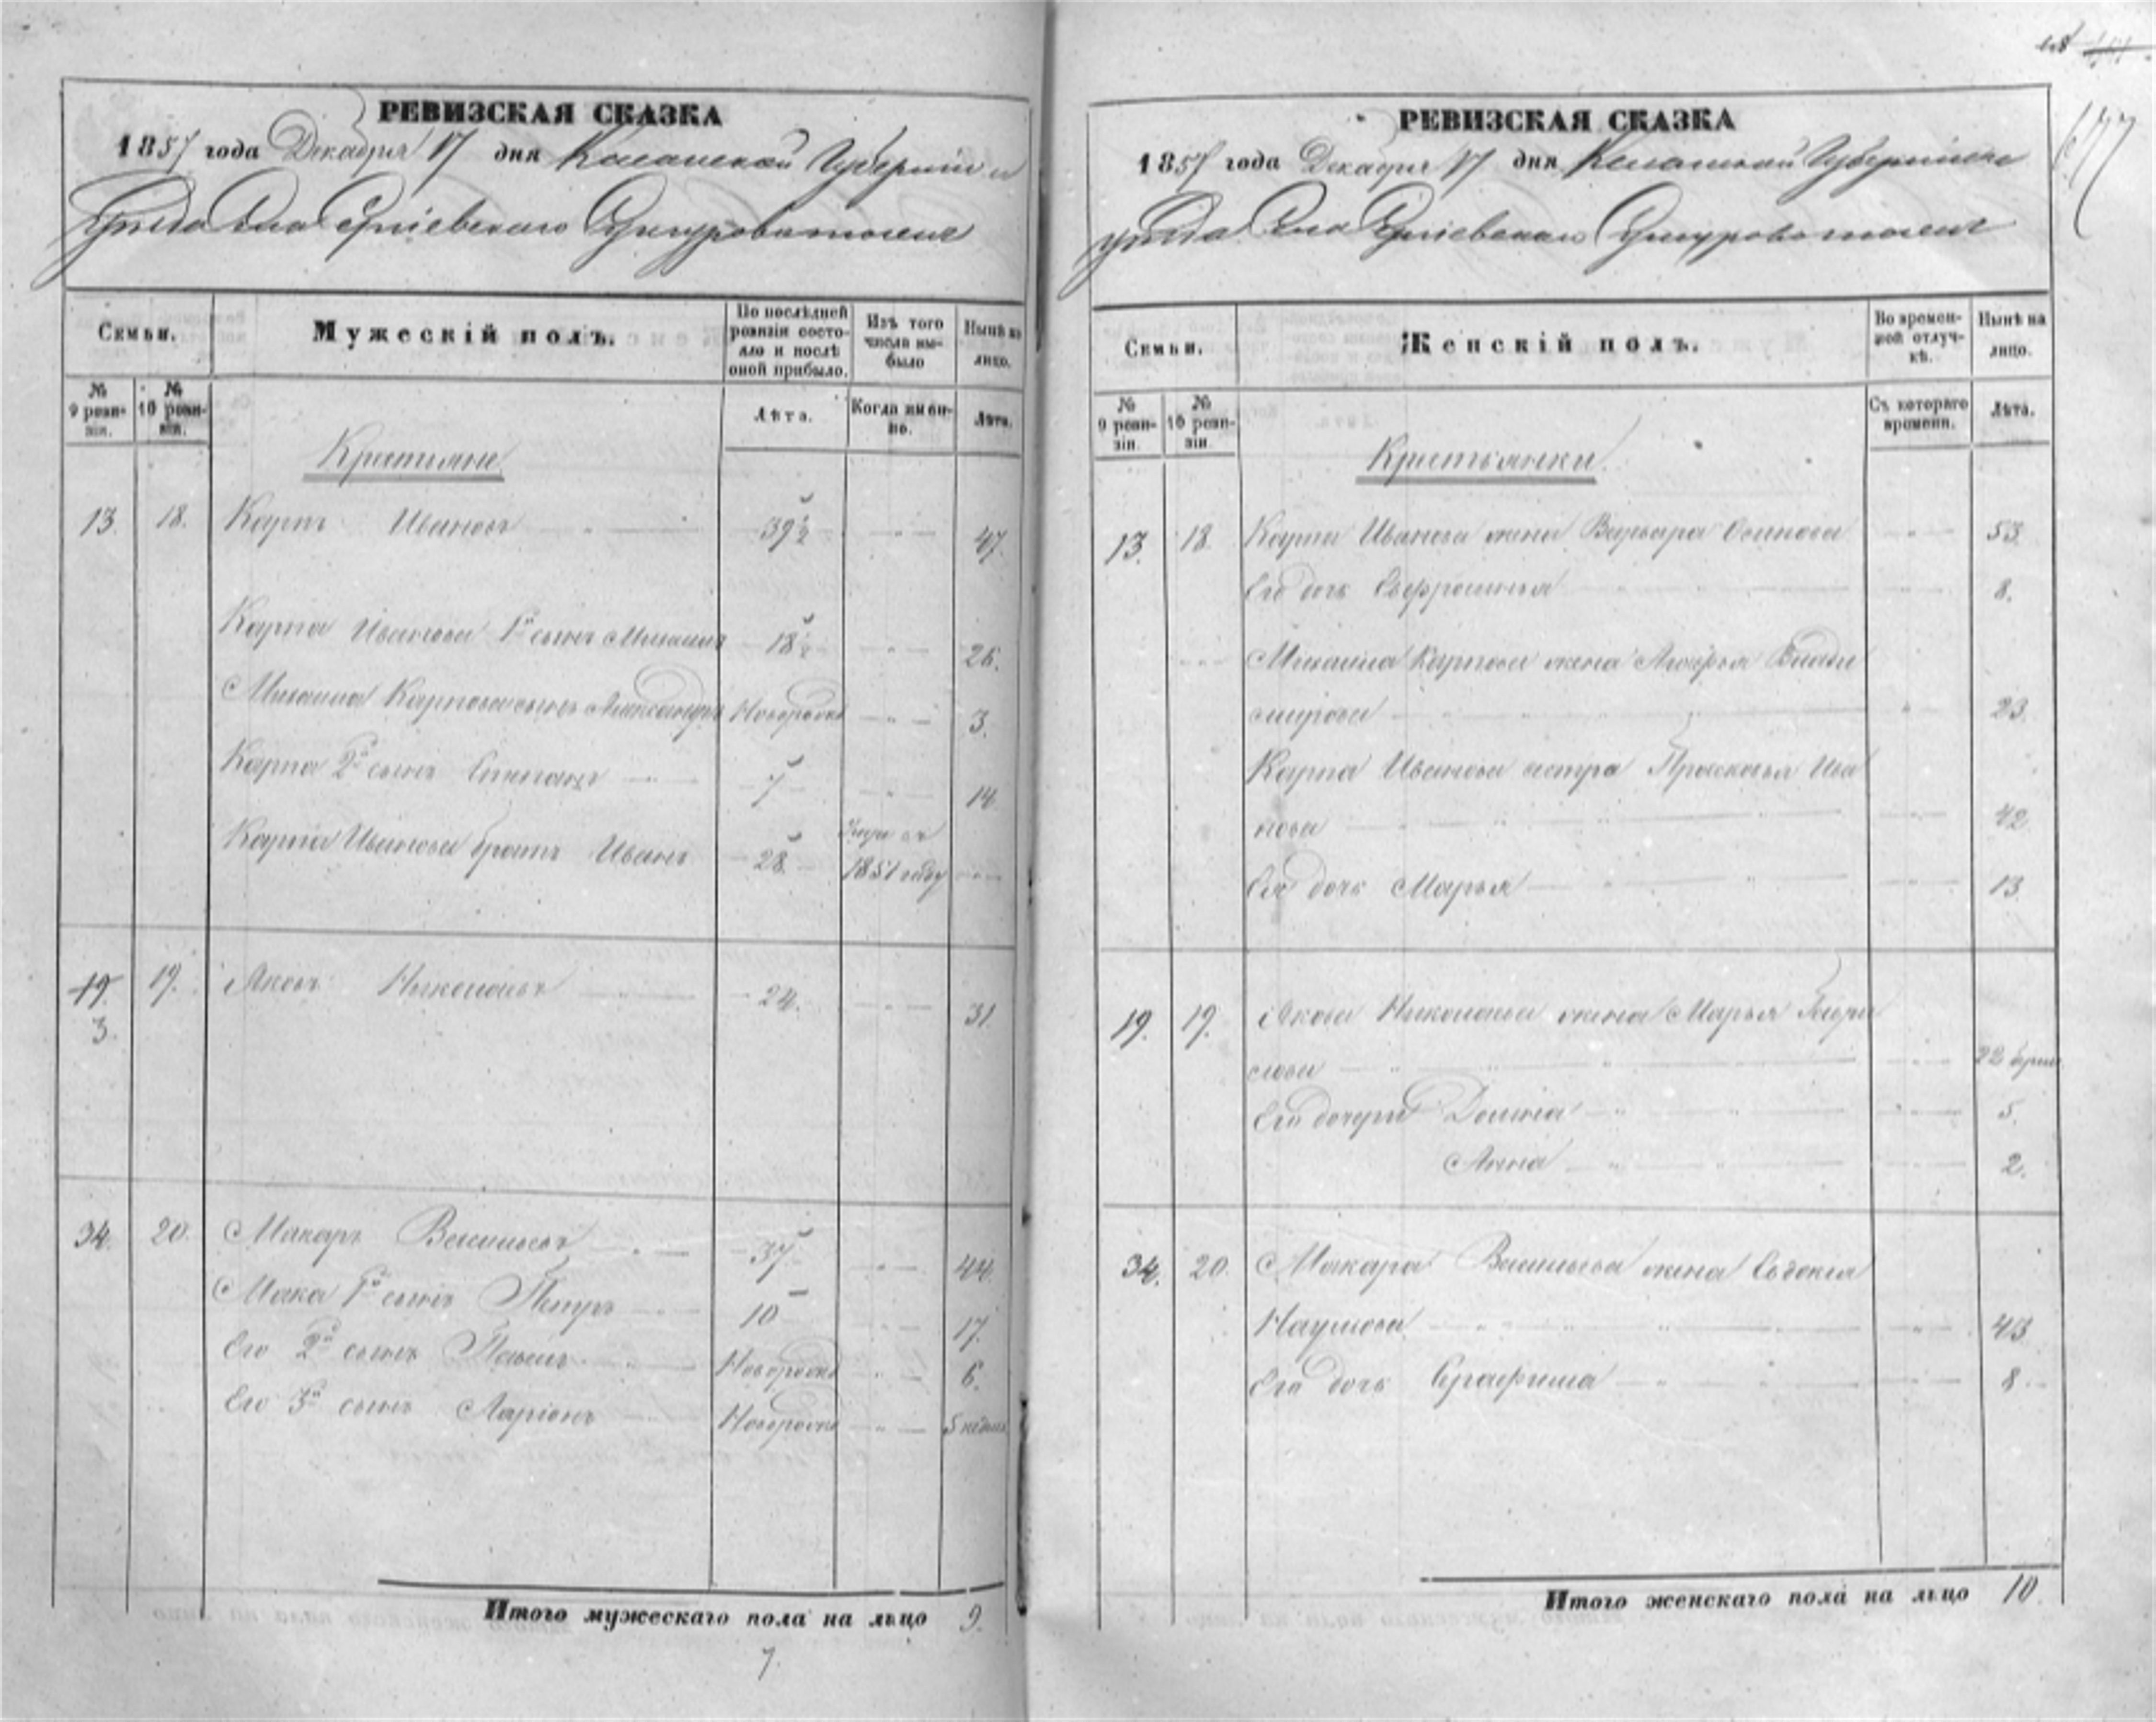 РЕВИЗСКАЯ СКАЗКА
1857 года Декабря 17 дня Казанской Губернии и
уѣзда Села
Семьи.
Мужескій полъ.
По послѣдней ревизіи состояло и послѣ оной прибыло.
Изъ того числа выбыло
Нынѣ на лицо.
№ 9 ревизіи.
№ 10 ревизіи.
Лѣта.
Когда именно.
Лѣта.
Крестьяне
13. 18. Карпъ Ивановъ 39½ 47.
Карпа Иванова 1й сынъ Михаилъ 18½ 26.
Михаила Карпова сынъ Александръ Новорожд 3.
Карпа 2й сынъ Степанъ 7 14
Карпа Иванова братъ Иванъ 28
1851 году
19. 19. Яковъ Николаевъ 24. 31
3.
34. 20. Макаръ Васильевъ 37 44.
Мака 1й сынъ Петръ 10 17.
Его 2й сынъ Павелъ Новорожд 6.
Его 3й сынъ Ларіонъ Новорожд
Итого мужескаго пола на лицо 9.
7.
РЕВИЗСКАЯ СКАЗКА
1857 года Декабря 17 дня Казанской Губерніи
уѣзда Села
Семьи.
Женскій полъ.
Во временной отлучкѣ.
Нынѣ на лицо.
№ 9 ревизіи.
№ 10 ревизіи.
Съ котораго времени.
Лѣта.
Крестьянки
13. 18. Карпа Иванова жена Варвара Осипова 53.
Его дочь Евфросинья 8.
Михаила Карпова жена Влади
мирова 23
Карпа Иванова сестра Прасковья Ива
нова 42
Ея дочь Марья 13
19. 19. Якова Николаева жена Марья
22
Его дочери 5.
Анна 2.
34. 20. Макара Васильева жена Евдокия
Наумова 43
Его дочь Серафима 8
Итого женскаго пола на лицо 10